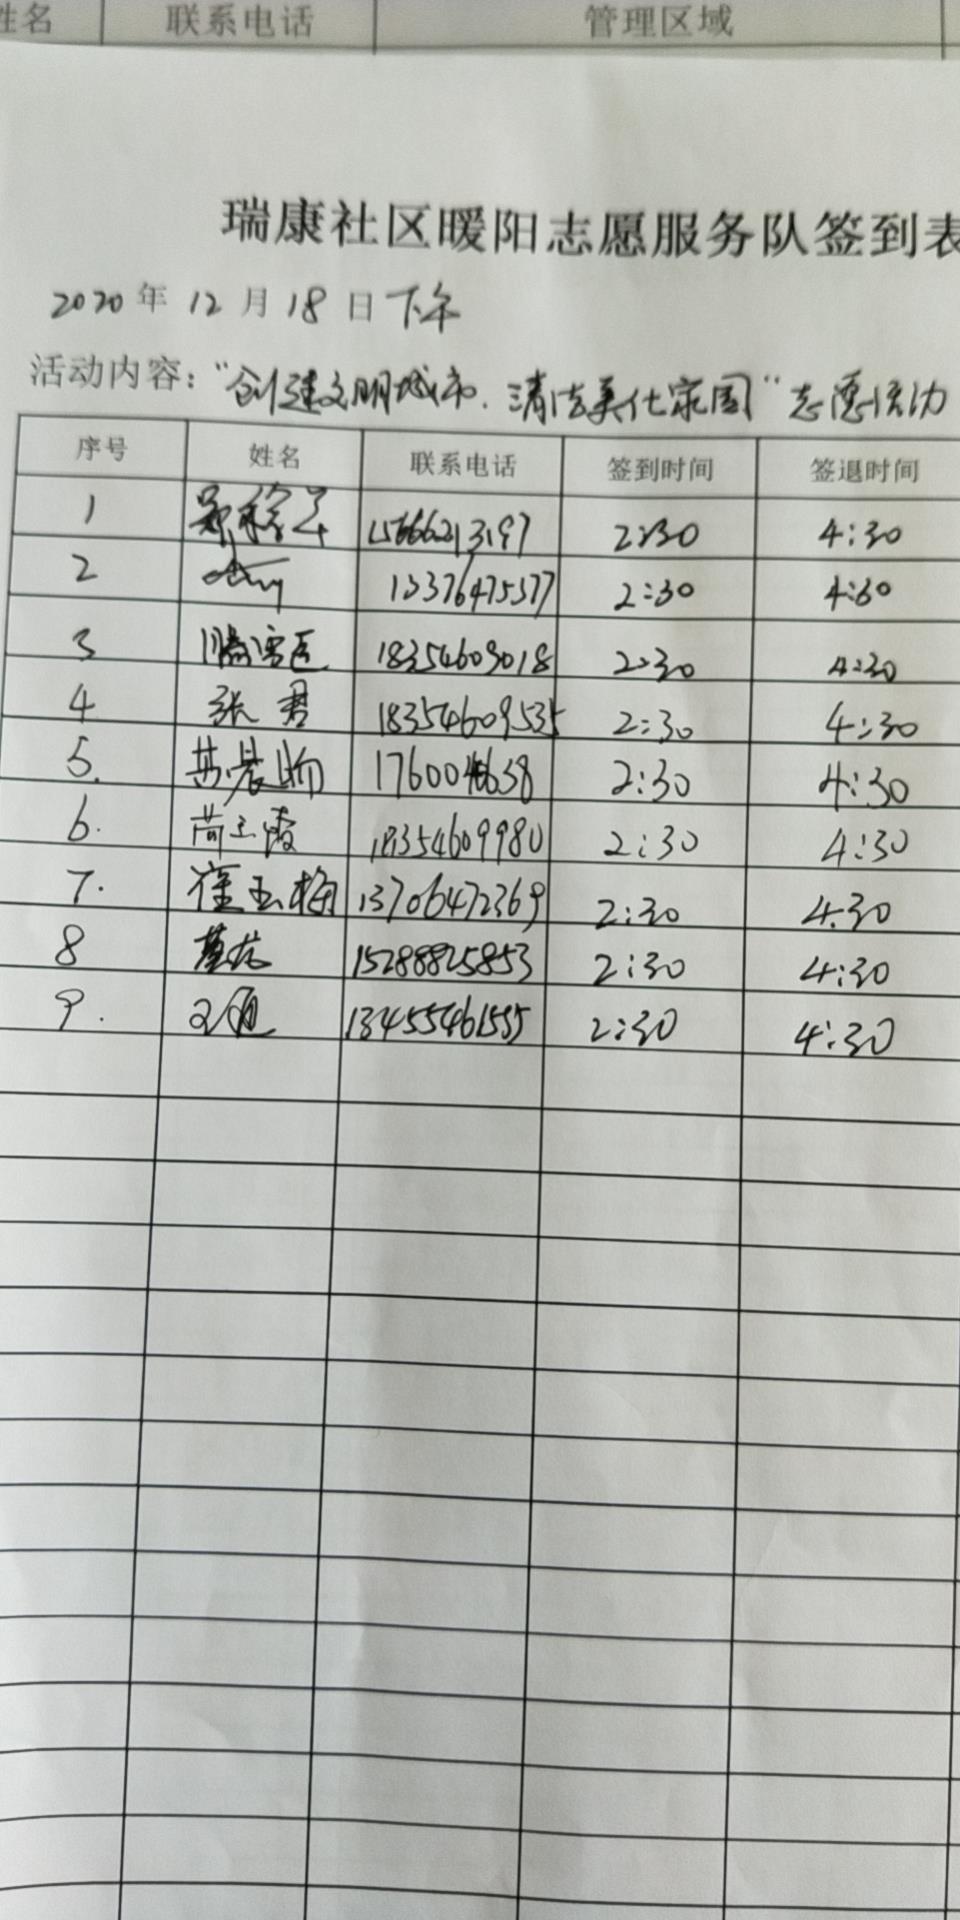 姓名 联系电话 管理区域
瑞康社区暖阳志愿服务队签到表
2020年12月18日下午
活动内容:"创建文明城市、清洁美化家园"志愿活动
序号 姓名 联系电话 签到时间 签退时间
1 15666213197 2:30 4:30
2 13376475377 2:30 4:30
3 18354609018 2:30 4:30
4 张君 18354609535 2:30 4:30
5. 2:30 4:30
6. 18354609980 2:30 4:30
7. 崔玉梅 13706472369 2:30 4:30
8 15288825853 2:30 4:30
9. 13455461555 2:30 4:30